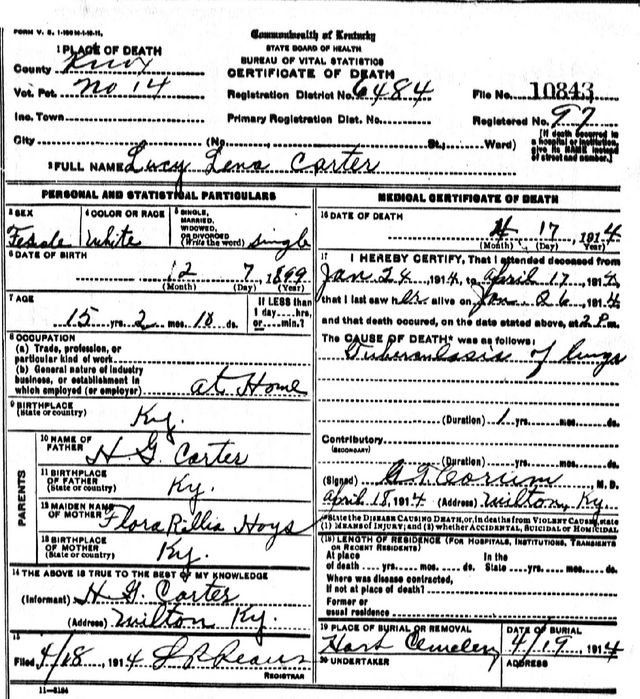 FORM V. S. 1-100 M-1-10-11.
Commonwealth of Kentucky
STATE BOARD OF HEALTH
BUREAU OF VITAL STATISTICS
CERTIFICATE OF DEATH
1 PLACE OF DEATH
County Knox
Vot. Pct. No 14
Inc. Town
City (No. St.; Ward)
Registration District No. 6484
Primary Registration Dist. No.
File No. 10843
Registered No. 97
[If death occurred in
a hospital or institution,
give its NAME instead
of street and number.]
2 FULL NAME Lucy Lena Carter
PERSONAL AND STATISTICAL PARTICULARS
3 SEX
Female
4 COLOR OR RACE
White
5 SINGLE,
MARRIED,
WIDOWED,
OR DIVORCED
(Write the word) Single
6 DATE OF BIRTH
12 7, 1899
(Month) (Day) (Year)
7 AGE
15 yrs. 2 mos. 18 ds.
If LESS than
1 day....hrs,
or....min.?
8 OCCUPATION
(a) Trade, profession, or
particular kind of work
(b) General nature of industry
business, or establishment in
which employed (or employer) at Home
9 BIRTHPLACE
(State or country) Ky.
PARENTS
10 NAME OF
FATHER H G. Carter
11 BIRTHPLACE
OF FATHER
(State or country) Ky.
12 MAIDEN NAME
OF MOTHER Flora Rillia Hays
13 BIRTHPLACE
OF MOTHER
(State or country) Ky.
14 THE ABOVE IS TRUE TO THE BEST OF MY KNOWLEDGE
(Informant) H G. Carter
(Address) Wilton Ky.
15
Filed 4/18, 1914
REGISTRAR
11-3184
MEDICAL CERTIFICATE OF DEATH
16 DATE OF DEATH
4 17, 1914
(Month) (Day) (Year)
17 I HEREBY CERTIFY, That I attended deceased from
Jan 24 1914, to April 17, 1914,
that I last saw her alive on Jan. 26, 1914
and that death occured, on the date stated above, at 2 P.m.
The CAUSE OF DEATH* was as follows:
Tuberculosis of lungs
(Duration) 1 yrs. mos. ds.
Contributory
(SECONDARY)
(Duration) yrs. mos. ds.
(Signed) G. T. Corum M. D.
April 18, 1914 (Address) Wilton, Ky.
*State the DISEASE CAUSING DEATH, or, in deaths from VIOLENT CAUSES, state
(1) MEANS OF INJURY; and (2) whether ACCIDENTAL, SUICIDAL or HOMICIDAL
(18) LENGTH OF RESIDENCE (FOR HOSPITALS, INSTITUTIONS, TRANSIENTS
OR RECENT RESIDENTS)
At place In the
of death yrs. mos. ds. State yrs. mos. ds.
Where was disease contracted,
if not at place of death?
Former or
usual residence
19 PLACE OF BURIAL OR REMOVAL
Hart Cemetery
DATE OF BURIAL
4/19, 1914
20 UNDERTAKER
ADDRESS